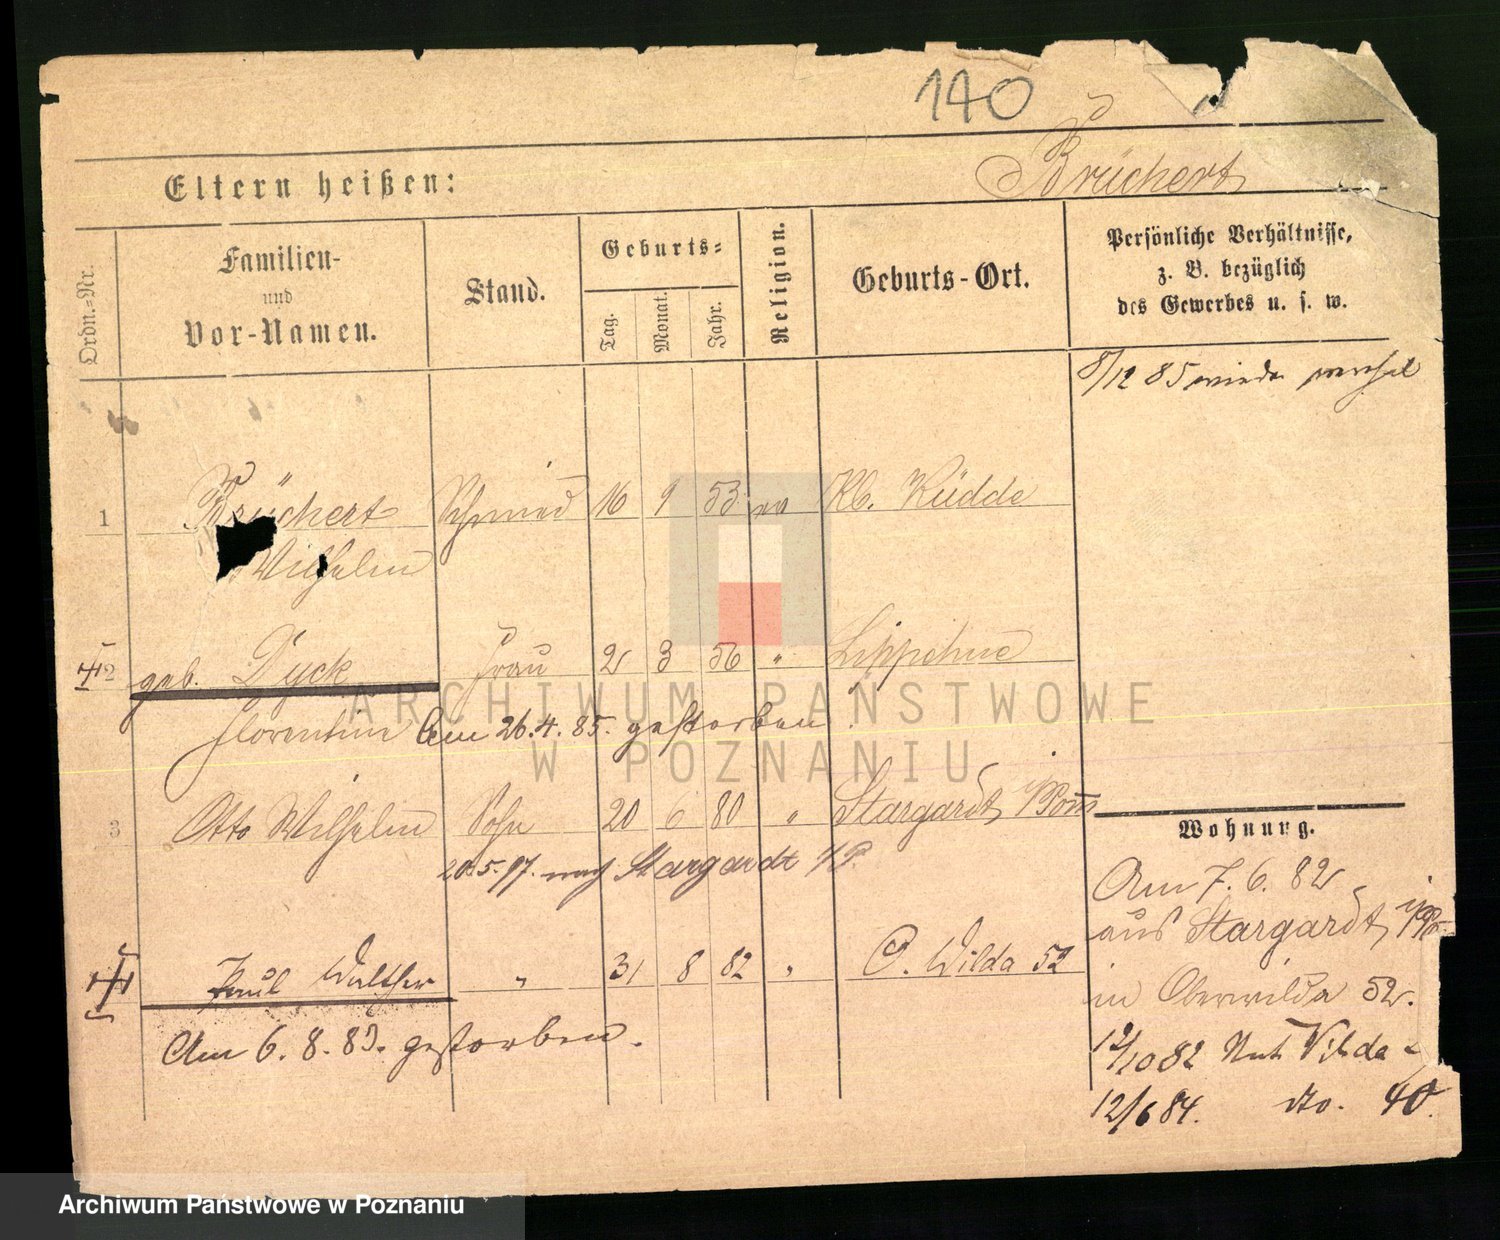 140
Brüchert
Eltern heißen:
Ordn.=Nr.
Familien-
und
Vor-Namen.
Stand.
Geburts=
Tag.
Monat.
Jahr.
Religion.
Geburts-Ort.
Persönliche Verhältnisse,
z. B. bezüglich
des Gewerbes u. s. w.
8/12 85 wieder
1 Brüchert Schmied 16 9 53 ev Kl. Küdde
Wilhelm
2 geb. Dyck Frau 2 3 56 " Lippehne
Florentine Am 26.4.85. gestorben.
ARCHIWUM PAŃSTWOWE
W POZNANIU
3 Otto Wilhelm Sohn 20 6 80 " Stargardt i/Pom
20.5.97. nach Stargardt i/P.
Paul Walther " 31 8 82 " O. Wilda 52
Am 6. 8. 83. gestorben.
Wohnung.
Am 7. 6. 82
aus Stargardt i/Pom
in Oberwilda 52.
12/10 82 Unt. Wilda
12/6 84. dto. 40.
Archiwum Państwowe w Poznaniu